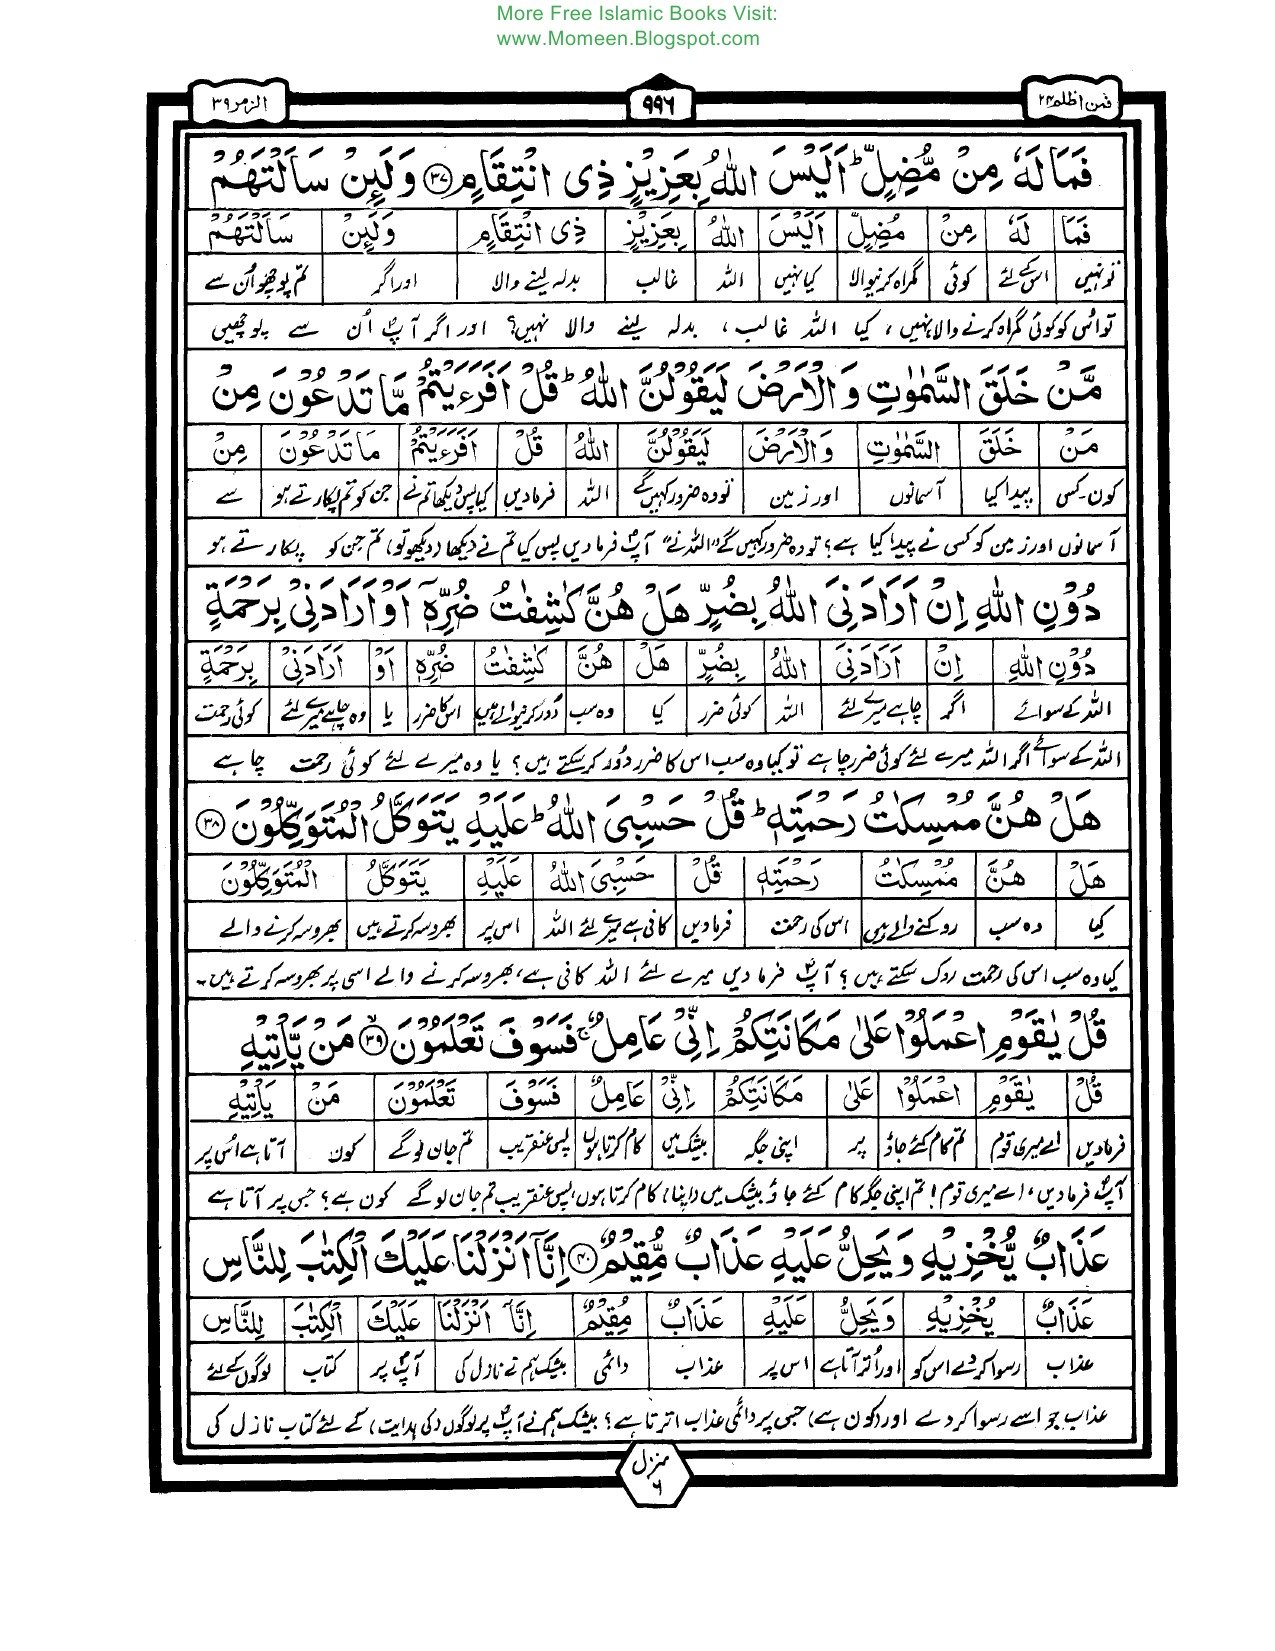 More Free Islamic Books Visit:
www.Momeen.Blogspot.com
فمن اظلم ۲۴
۹۹۶
الزمر ۳۹
فَمَا لَهٗ مِنْ مُّضِلٍّ ؕ اَلَیْسَ اللّٰهُ بِعَزِیْزٍ ذِی انْتِقَامٍ ﴿۳۷﴾ وَلَىِٕنْ سَاَلْتَهُمْ
فَمَا لَهٗ مِنْ مُضِلٍّ اَلَیْسَ اللّٰهُ بِعَزِیْزٍ ذِی انْتِقَامٍ وَلَىِٕنْ سَاَلْتَهُمْ
تو نہیں اس کے لئے کوئی گمراہ کرنیوالا کیا نہیں اللہ غالب بدلہ لینے والا اور اگر تم پوچھو اُن سے
تو اُس کو کوئی گمراہ کرنے والا نہیں، کیا اللہ غالب، بدلہ لینے والا نہیں؟ اور اگر آپؐ اُن سے پوچھیں
مَّنْ خَلَقَ السَّمٰوٰتِ وَالْاَرْضَ لَیَقُوْلُنَّ اللّٰهُ ؕ قُلْ اَفَرَءَیْتُمْ مَّا تَدْعُوْنَ مِنْ
مَنْ خَلَقَ السَّمٰوٰتِ وَالْاَرْضَ لَیَقُوْلُنَّ اللّٰهُ قُلْ اَفَرَءَیْتُمْ مَا تَدْعُوْنَ مِنْ
کون۔کس پیدا کیا آسمانوں اور زمین تو وہ ضرور کہیں گے اللہ فرمادیں کیا پس دیکھا تم نے جن کو تم پکارتے ہو سے
آسمانوں اور زمین کو کس نے پیدا کیا ہے؟ تو وہ ضرور کہیں گے "اللہ نے" آپؐ فرمادیں پس کیا تم نے دیکھا (دیکھو تو) تم جن کو پکارتے ہو
دُوْنِ اللّٰهِ اِنْ اَرَادَنِیَ اللّٰهُ بِضُرٍّ هَلْ هُنَّ كٰشِفٰتُ ضُرِّهٖۤ اَوْ اَرَادَنِیْ بِرَحْمَةٍ
دُوْنِ اللّٰهِ اِنْ اَرَادَنِیَ اللّٰهُ بِضُرٍّ هَلْ هُنَّ كٰشِفٰتُ ضُرِّهٖ اَوْ اَرَادَنِیْ بِرَحْمَةٍ
اللہ کے سوائے اگر چاہے میرے لئے اللہ کوئی ضرر کیا وہ سب دُور کرنیوالے ہیں اس کا ضرر یا وہ چاہے میرے لئے کوئی رحمت
اللہ کے سوائے اگر اللہ میرے لئے کوئی ضرر چاہے تو کیا وہ سب اس کا ضرر دُور کر سکتے ہیں؟ یا وہ میرے لئے کوئی رحمت چاہے
هَلْ هُنَّ مُمْسِكٰتُ رَحْمَتِهٖ ؕ قُلْ حَسْبِیَ اللّٰهُ ؕ عَلَیْهِ یَتَوَكَّلُ الْمُتَوَكِّلُوْنَ ﴿۳۸﴾
هَلْ هُنَّ مُمْسِكٰتُ رَحْمَتِهٖ قُلْ حَسْبِیَ اللّٰهُ عَلَیْهِ یَتَوَكَّلُ الْمُتَوَكِّلُوْنَ
کیا وہ سب روکنے والے ہیں اس کی رحمت فرمادیں کافی ہے میرے لئے اللہ اس پر بھروسہ کرتے ہیں بھروسہ کرنے والے
کیا وہ سب اس کی رحمت روک سکتے ہیں؟ آپؐ فرما دیں میرے لئے اللہ کافی ہے، بھروسہ کرنے والے اسی پر بھروسہ کرتے ہیں۔
قُلْ یٰقَوْمِ اعْمَلُوْا عَلٰی مَكَانَتِكُمْ اِنِّیْ عَامِلٌ ۚ فَسَوْفَ تَعْلَمُوْنَ ﴿۳۹﴾ مَنْ یَّاْتِیْهِ
قُلْ یٰقَوْمِ اعْمَلُوْا عَلٰی مَكَانَتِكُمْ اِنِّیْ عَامِلٌ فَسَوْفَ تَعْلَمُوْنَ مَنْ یَاْتِیْهِ
فرمادیں اے میری قوم تم کام کئے جاؤ پر اپنی جگہ بیشک میں کام کرتا ہوں پس عنقریب تم جان لو گے کون آتا ہے اُس پر
آپؐ فرمادیں، اے میری قوم! تم اپنی جگہ کام کئے جاؤ بیشک میں (اپنا) کام کرتا ہوں، پس عنقریب تم جان لو گے کون ہے؟ جس پر آتا ہے
عَذَابٌ یُّخْزِیْهِ وَیَحِلُّ عَلَیْهِ عَذَابٌ مُّقِیْمٌ ﴿۴۰﴾ اِنَّاۤ اَنْزَلْنَا عَلَیْكَ الْكِتٰبَ لِلنَّاسِ
عَذَابٌ یُخْزِیْهِ وَیَحِلُّ عَلَیْهِ عَذَابٌ مُقِیْمٌ اِنَّاۤ اَنْزَلْنَا عَلَیْكَ الْكِتٰبَ لِلنَّاسِ
عذاب رسوا کر دے اس کو اور اُتر آتا ہے اس پر عذاب دائمی بیشک ہم نے نازل کی آپؐ پر کتاب لوگوں کے لئے
عذاب جو اسے رسوا کر دے اور (کون ہے) جس پر دائمی عذاب اترتا ہے؟ بیشک ہم نے آپؐ پر لوگوں (کی ہدایت) کے لئے کتاب نازل کی
منزل ۶